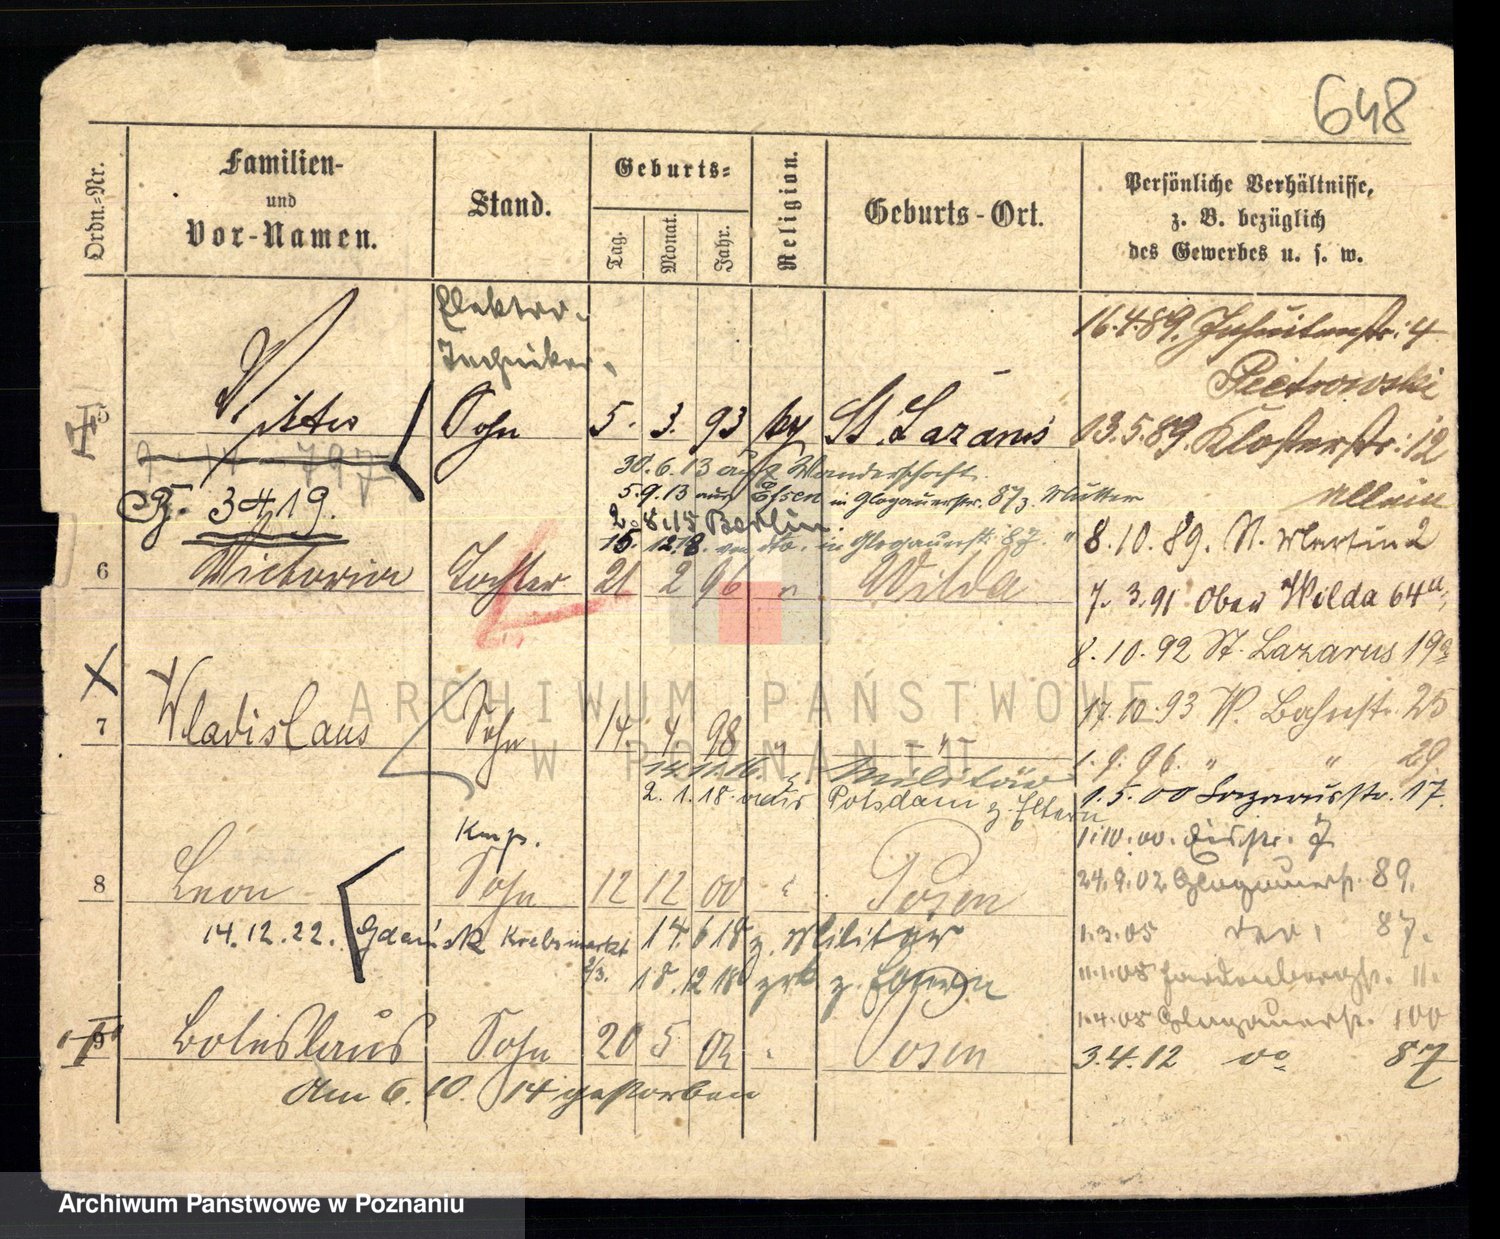 648
Ordn.-Nr.
Familien-
und
Vor-Namen.
Stand.
Geburts-
Tag.
Monat.
Jahr.
Religion.
Geburts-Ort.
Persönliche Verhältnisse,
z. B. bezüglich
des Gewerbes u. s. w.
Elektro-
Techniker.
5 Sohn 5. 3. 93 St. Lazarus
30.6.13 auf Wanderschaft.
3419.
5.9.13 aus Essen in Glogauerstr. 87 z. Mutter
2.8.15 Berlin.
15. 12.18. von do. in Glogauerstr. 87. "
6 Victoria Tochter 21 2 96 " Wilda
7 Wladislaus Sohn 14 4 98 " "
14.11.16. z. Militär
2.1.18 aus Potsdam z. Eltern
8 Leon Sohn 12 12 00 " Posen
14.12.22. Gdańsk Krebsmarkt 2/3.
14.6 18 z. Militär
18.12 18 zrk z. Eltern
9 Boleslaus Sohn 20 5 02 " Posen
Am 6. 10. 14 gestorben
16.4.89. Jesuitenstr. 4
Pietrowski
13.5.89. Klosterstr. 12
allein
8.10.89. St. Martin 2
7. 3.91 Ober Wilda 64a,
8.10.92 St. Lazarus 19a
17.10.93 W. Bahnstr. 25
1.9.96. " " 29
1.5.00 Lazarusstr. 17.
1.10.00.
24.9.02 Glogauerstr. 89.
1.3.05 87.
11.1.05 Hardenbergstr. 11.
1.4.05 Glogauerstr. 100
3.4.12 do 87
ARCHIWUM PAŃSTWOWE
W POZNANIU
Archiwum Państwowe w Poznaniu